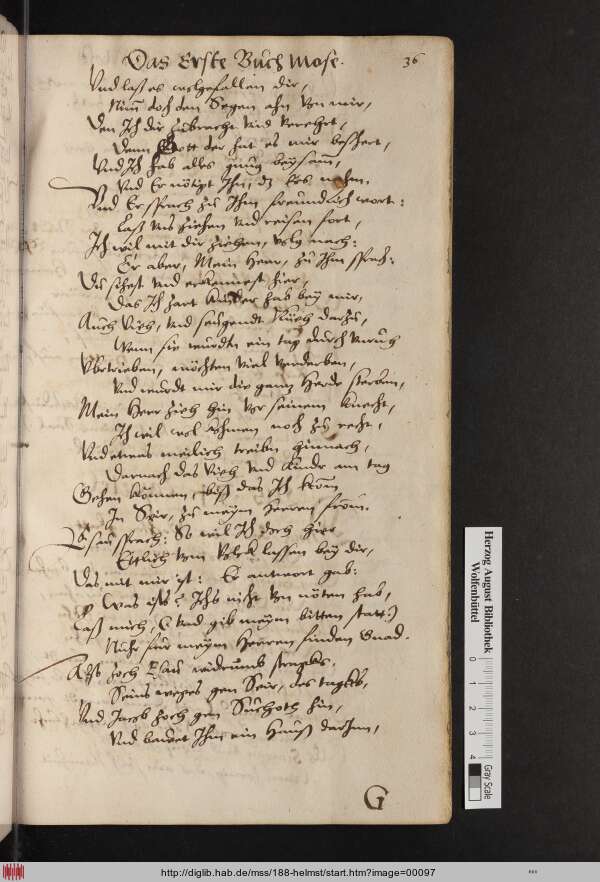 Das Erste Buch Mose. 36
Und laß es wolgefallen dir,
Nim doch den Segen ahn von mir,
Den Ich dir zubracht und verehrt,
Denn Gott der hat es mir beschert,
Und Ich hab alles gnug beysam,
Und Er nötigt Ihn, dz Ers nahm.
Und Er sprach zu Ihm freundlich wort:
Laß uns ziehen und reisen fort,
Ich wil mit dir ziehen, nach:
Er aber, Mein Herr, zu Ihm sprach:
Du sihest und erkennest hier,
Das Ich zart Kinder hab bey mir,
Auch Vieh, und seugendt Kueh darzu,
Wenn sie wurdtn ein tag durch unruh
Ubertrieben, möchten viel verderben,
Und wurdt mir die gantz Herde sterben,
Mein Herr zieh hin vor seinem Knecht,
Ich wil wol kohmen noch zu recht,
Und etwas meilich treibn hinnach,
Darnach das Vieh und Kinder am tag
Gehen können, biß das Ich kom
In Seir, zu meym Herren from.
Esau sprach: So wil Ich doch hier
Ettlich vom Volck lassen bey dir,
Das mit mir ist: Er antwort gab:
Was ists? Ichs nicht von nöten hab,
Laß mich, (Und gib meym bitten statt)
Nuhr für meym Herren finden Gnad.
Also zoch Esau widrumb
Seins weges gen Seir, des tags,
Und Jacob zoch gen Suchoth hin,
Und bawet Ihm ein Hauß darInn,
G
Herzog August Bibliothek
Wolfenbüttel
0 1 2 3 4
Gray Scale
http://diglib.hab.de/mss/188-helmst/start.htm?image=00097